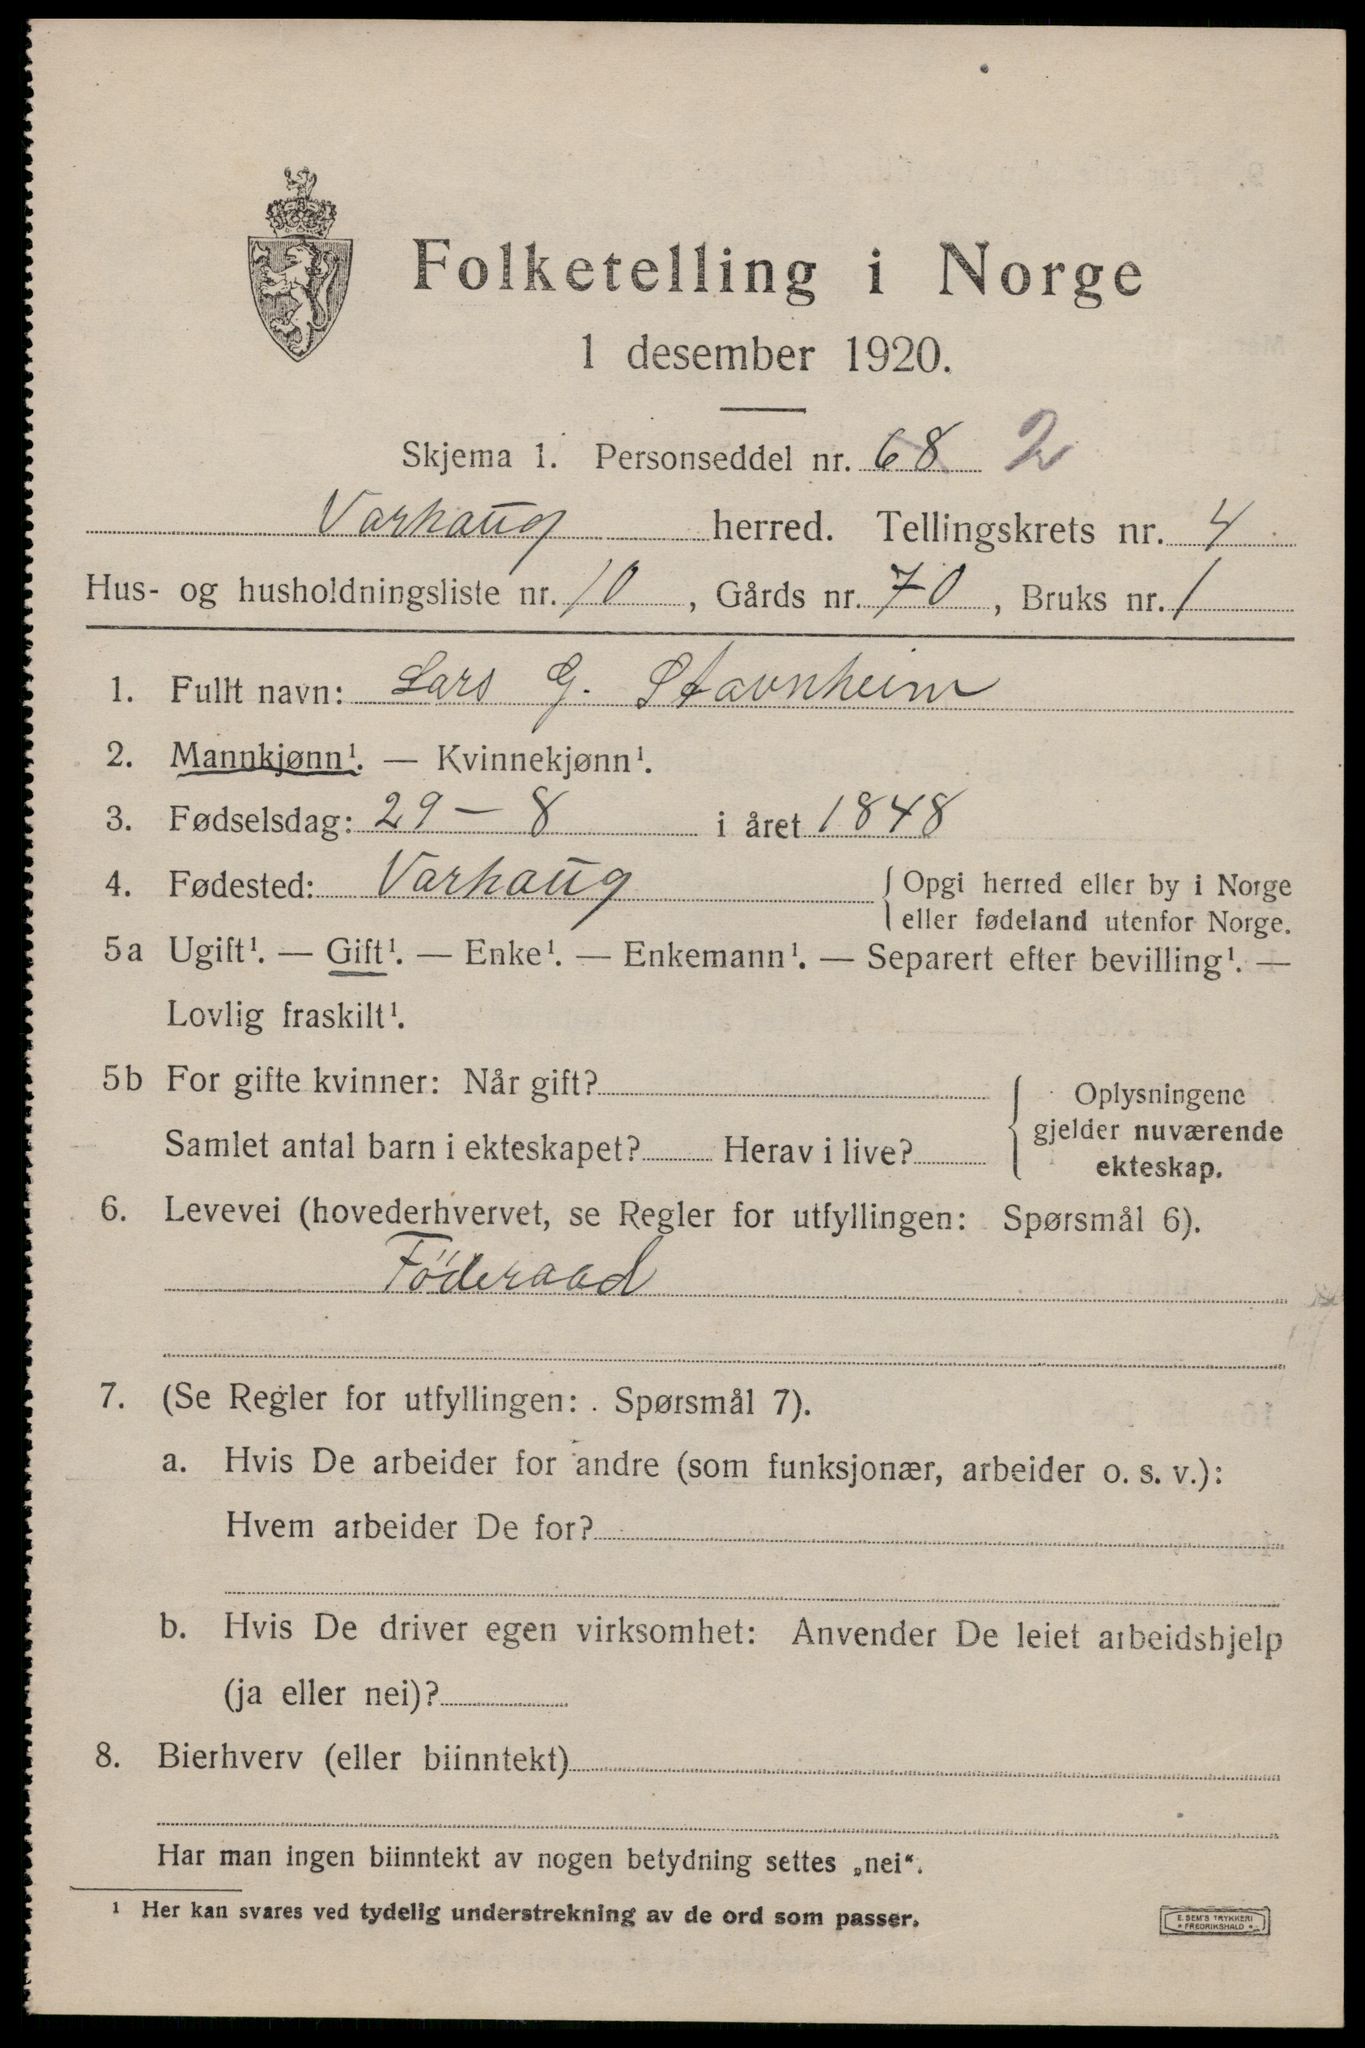 Folketelling i Norge
1 desember 1920.
Skjema 1. Personseddel nr. 68 2
Varhaug herred. Tellingskrets nr. 4
Hus- og husholdningsliste nr. 10, Gårds nr. 70, Bruks nr. 1
1. Fullt navn: Lars G. Stavnheim
2. Mannkjønn¹. — Kvinnekjønn¹.
3. Fødselsdag: 29 – 8 i året 1848
4. Fødested: Varhaug { Opgi herred eller by i Norge
eller fødeland utenfor Norge.
5a Ugift¹. — Gift¹. — Enke¹. — Enkemann¹. — Separert efter bevilling¹. —
Lovlig fraskilt¹.
5b For gifte kvinner: Når gift? { Oplysningene
gjelder nuværende
Samlet antal barn i ekteskapet? Herav i live?
ekteskap.
6. Levevei (hovederhvervet, se Regler for utfyllingen: Spørsmål 6).
Föderaad
7. (Se Regler for utfyllingen: Spørsmål 7).
a. Hvis De arbeider for andre (som funksjonær, arbeider o. s. v.):
Hvem arbeider De for?
b. Hvis De driver egen virksomhet: Anvender De leiet arbeidshjelp
(ja eller nei)?
8. Bierhverv (eller biinntekt)
Har man ingen biinntekt av nogen betydning settes „nei“.
¹ Her kan svares ved tydelig understrekning av de ord som passer.
E. SEM'S TRYKKERI
* FREDRIKSHALD *